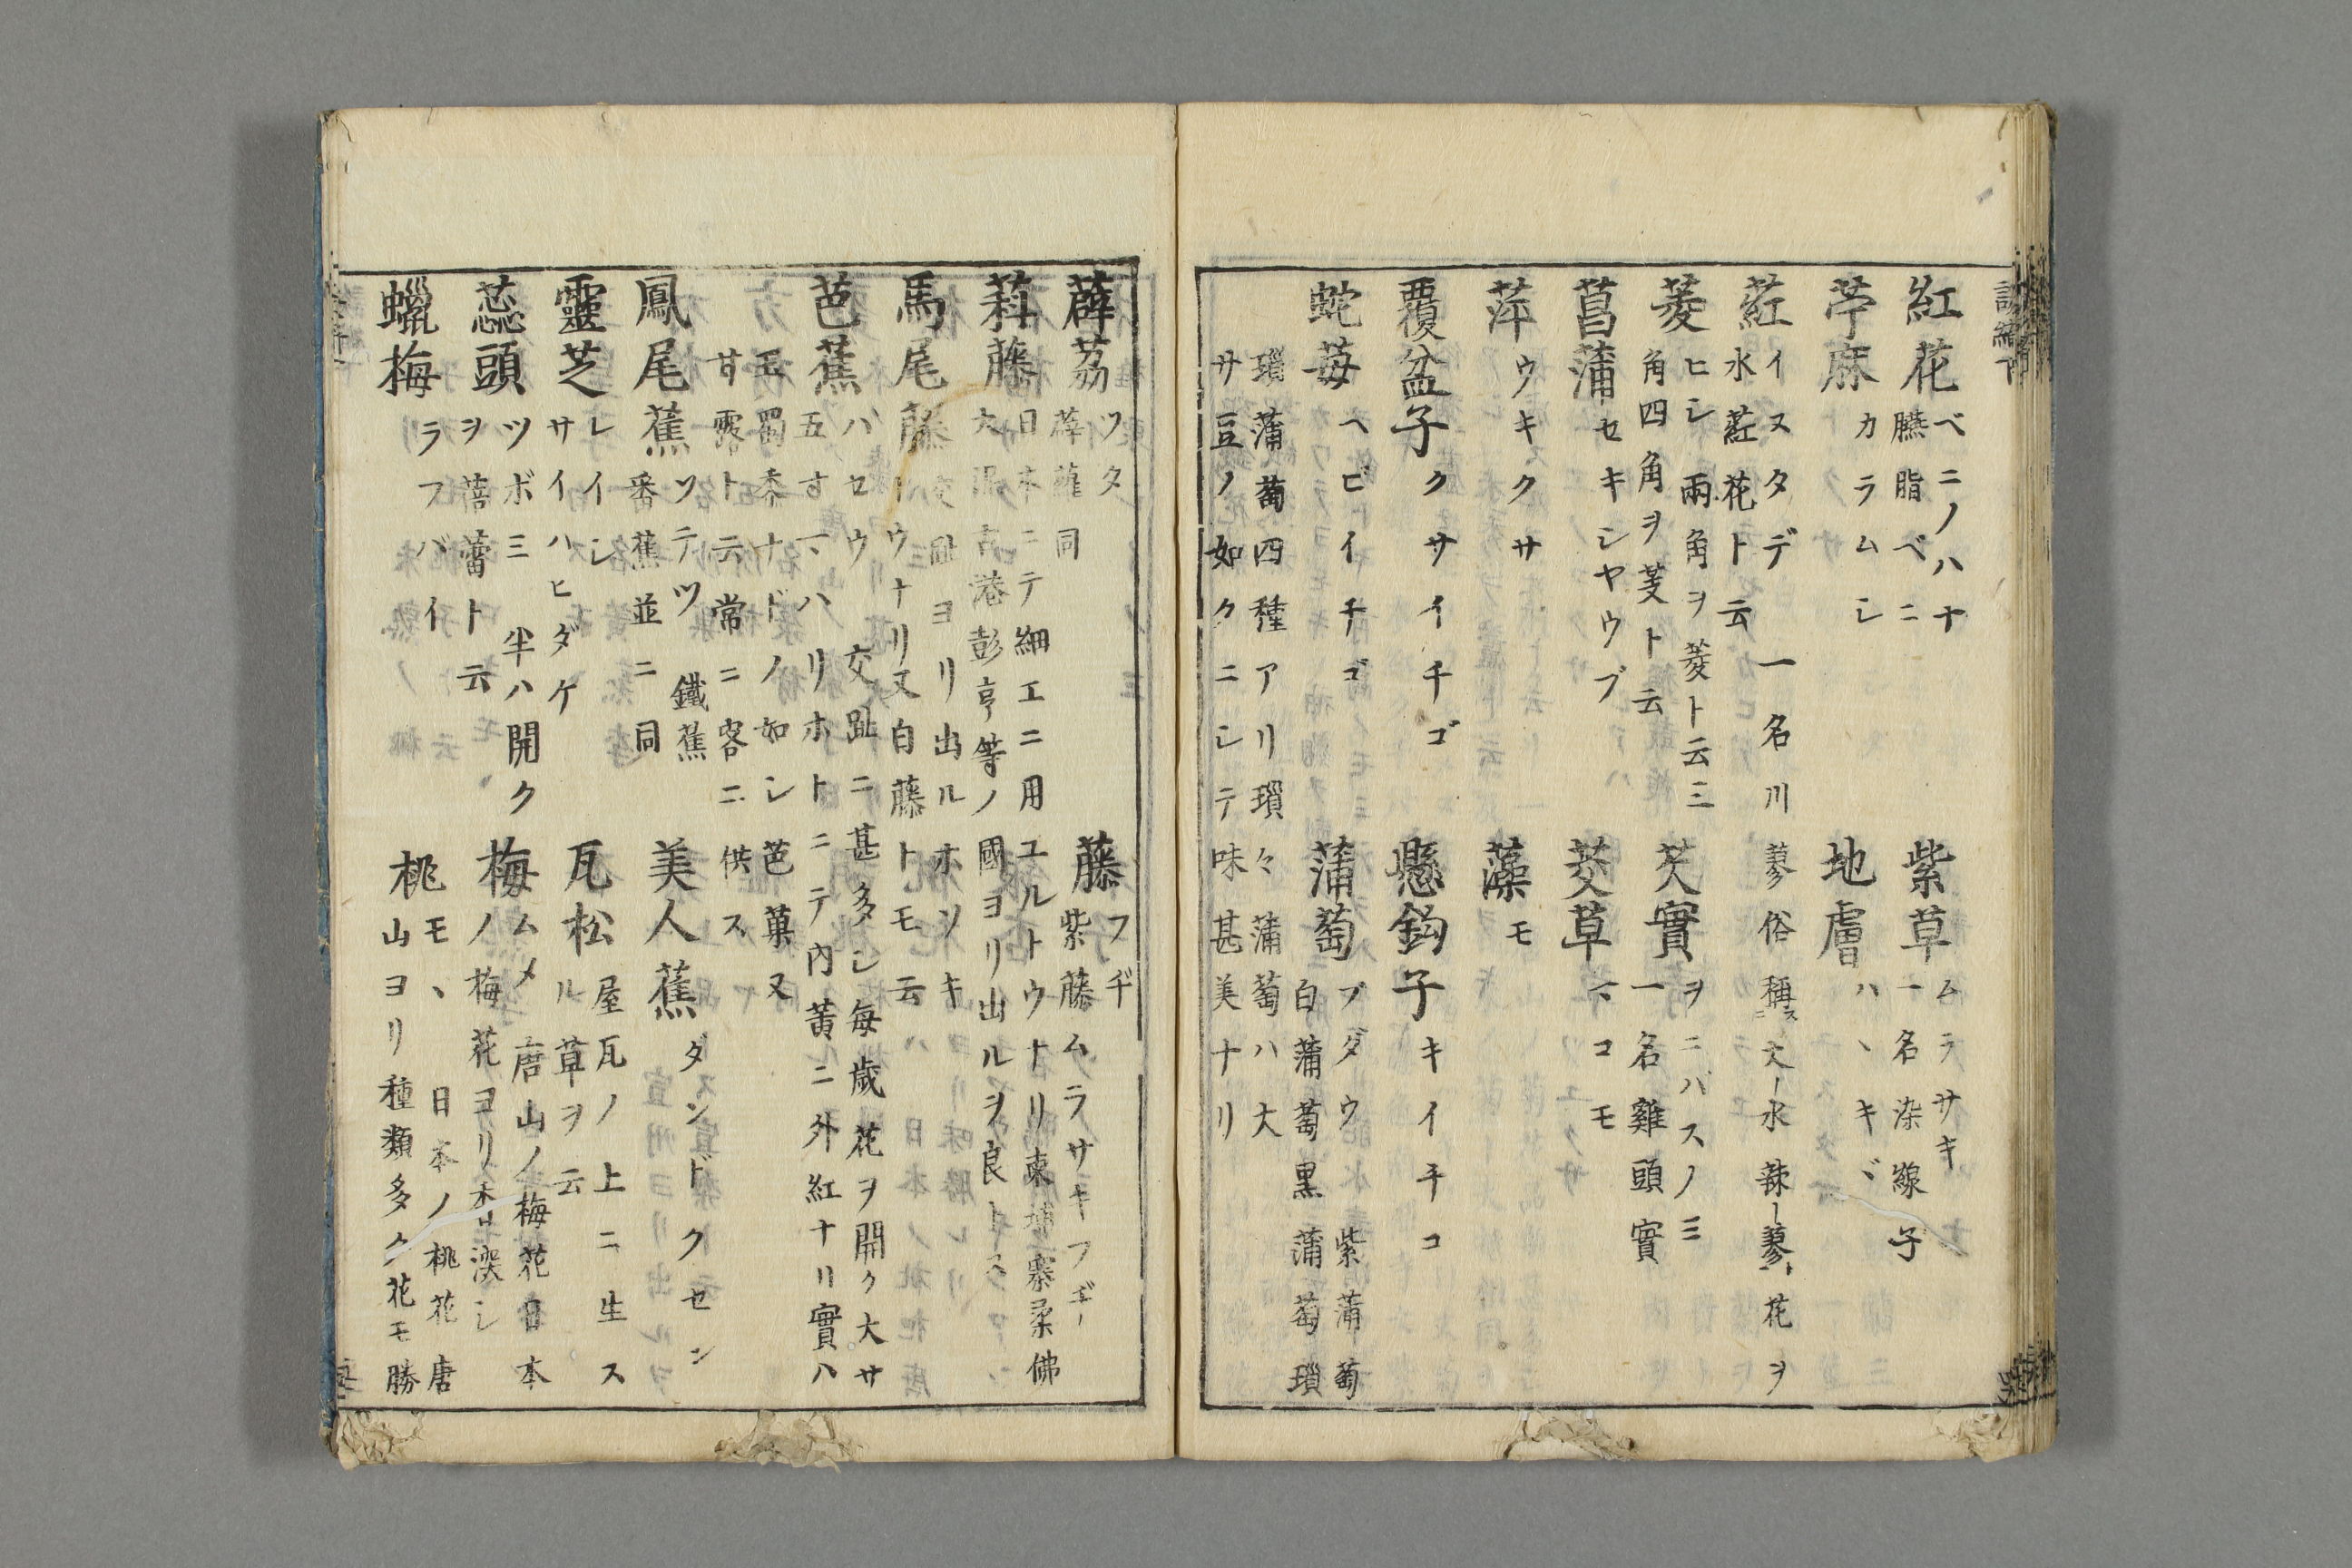 紅花 ベニノハナ
臙脂 ベニ
紫草 ムラサキ
一名染線子
苧麻 カラムシ
地膚 ハヽキヾ
葒 イヌタデ 一名川蓼俗稱ス大ー水辣ー蓼ト花ヲ
水葒花ト云
菱 ヒシ 兩角ヲ菱ト云三
角四角ヲ芰ト云
芡實 ヲニバスノミ
一名雞頭實
菖蒲 セキシヤウブ
茭草 マコモ
萍 ウキクサ
藻 モ
覆盆子 クサイチゴ
懸鈎子 キイチコ
蛇苺 ヘビイチゴ
蒲萄 ブダウ 紫蒲萄
白蒲萄黒蒲萄瑣
瑣蒲萄四種アリ瑣々蒲萄ハ大
サ豆ノ如クニシテ味甚美ナリ
薜荔 ツタ
薜蘿 同
藤 フヂ
紫藤 ムラサキフヂ
科藤 日本ニテ細工ニ用ユルトウナリ柬埔寨柔佛
大泥占港彭亨等ノ國ヨリ出ルヲ良トス
馬尾藤 交趾ヨリ出ルホソキ
トウナリ又白藤トモ云
芭蕉 バセウ 交趾ニ甚多シ毎歳花ヲ開ク大サ
五寸マハリホトニテ内黃ニ外紅ナリ實ハ
玉蜀黍ナドノ如シ芭菓又
甘露ト云常ニ客ニ供ス
鳳尾蕉 ソテツ 鐵蕉
番蕉並ニ同
美人蕉 ダンドクセン
靈芝 レイシ
サイハヒダケ
瓦松 屋瓦ノ上ニ生ス
ル草ヲ云
蕊頭 ツボミ 半ハ開ク
ヲ蓓蕾ト云
梅 ムメ 唐山ノ梅花日本
ノ梅花ヨリ香深シ
蠟梅 ラフバイ
桃 モヽ 日本ノ桃花唐
山ヨリ種類多ク花モ勝